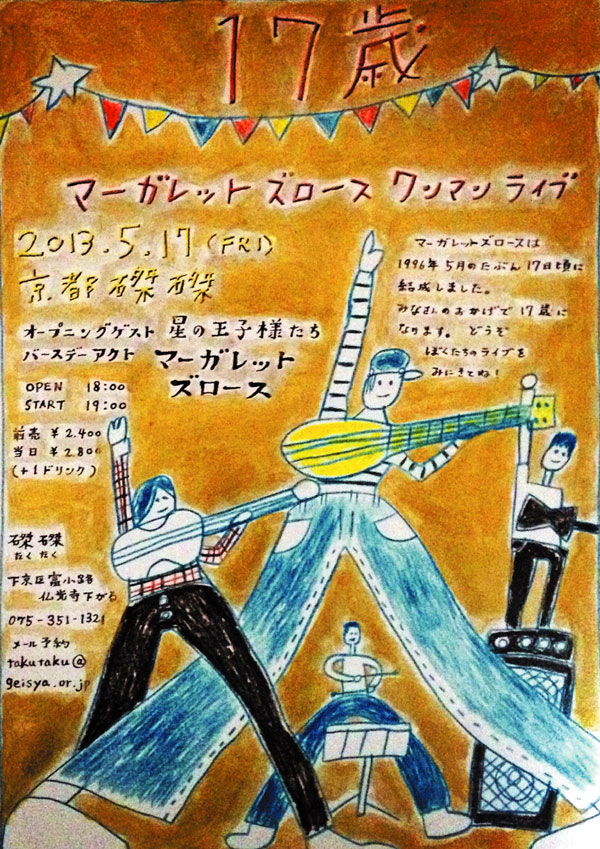 17歳
マーガレットズロース ワンマンライブ
2013.5.17(FRI)
京都磔磔
マーガレットズロースは
1996年5月のたぶん17日頃に
結成しました。
みなさんのおかげで17歳に
なります。 どうぞ
ぼくたちのライブを
みにきてね!
オープニングゲスト 星の王子様たち
バースデーアクト マーガレット
ズロース
OPEN 18:00
START 19:00
前売 ¥2.400
当日 ¥2.800
(+1ドリンク)
磔磔
たくたく
下京区富小路
仏光寺下がる
075-351-1321
メール予約
takutaku@
geisya.or.jp